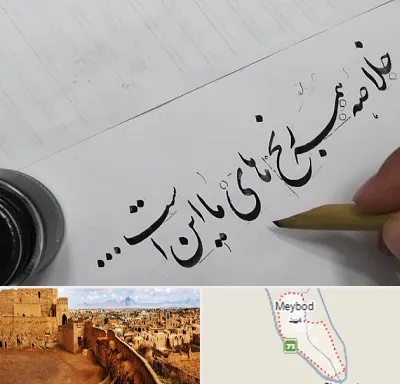 خلاصه همه رنج های ما این است...
Meybod
میبد
71